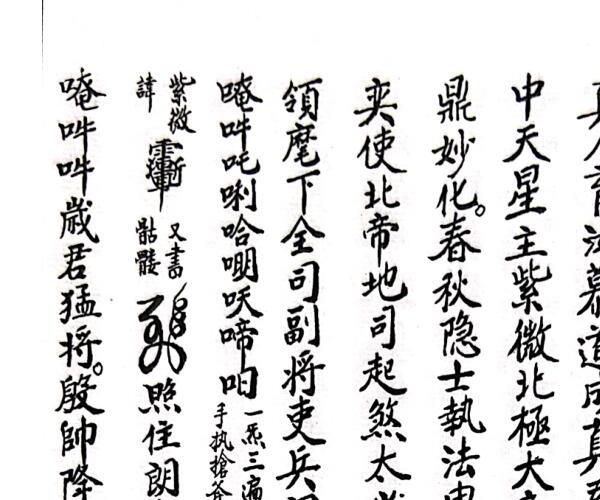 慕道成真
中天星主紫微北極大
鼎妙化。春秋隐士執法
奕使北帝地司起煞太歲
領麾下全司副将吏兵
唵吽吒唎哈啼
一炁三遍
手执槍
紫微
諱
又書
骷髏
照住朗
唵吽吽歲君猛将。殷帥降